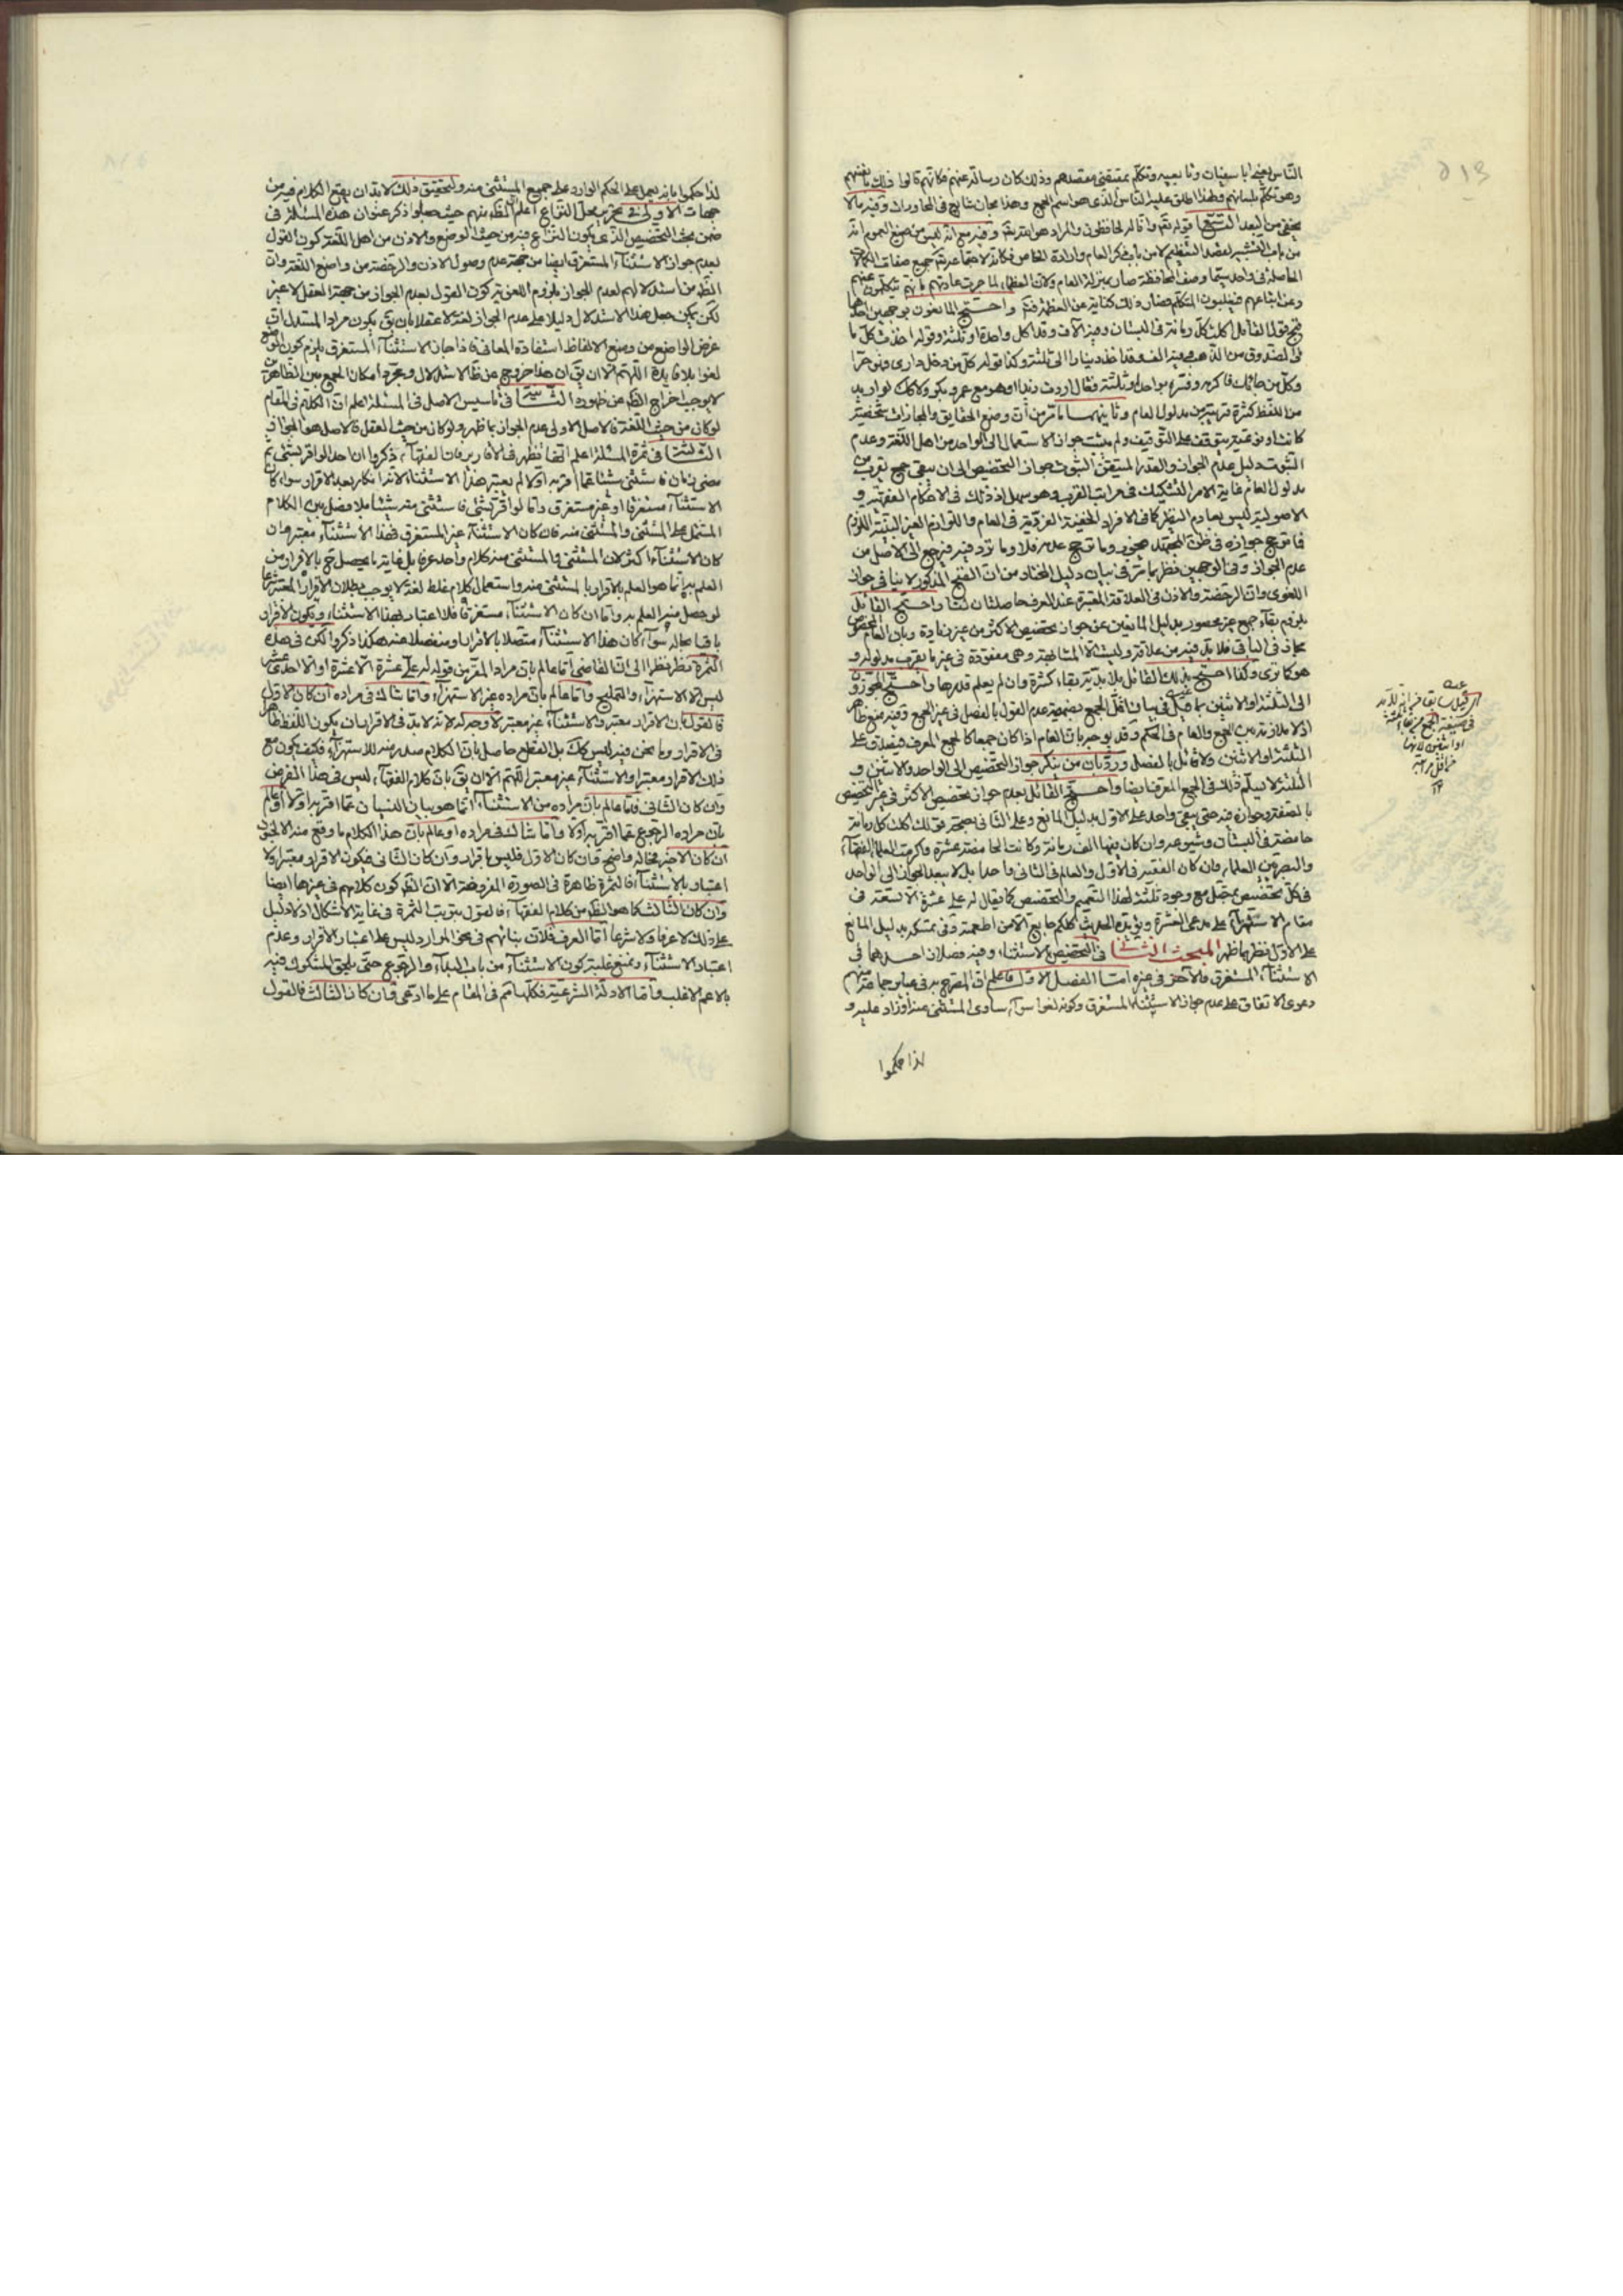 الناس يعني ابا سفيان وتابعيه وتكلم بمقتضى مقصدهم وذلك كان رسالة عنهم فكانهم قالوا ذلك بانفسهم
وهو تكلم بلسانهم فلهذا اطلق عليه الناس الذي هو اسم الجمع وهذا مجاز شايع في المحاورات وفيه ما لا
يخفى من البعد قوله تعالى وانا له لحافظون والمراد هو تعالى وفيه مع انه ليس من صيغ العموم انه
من باب التشبيه لقصد التعظيم لا من باب ذكر العام وارادة الخاص فكانه لاجتماعه جميع صفات الكمال
الحاصلة في واحد سيما وصف المحافظة صار بمنزلة العام ولان العظماء لما جرت عادتهم بانهم يتكلمون عنهم
وعن اتباعهم فيغلبون المتكلم فصار ذلك كناية عن العظمة فتم واحتج المانعون بوجهين احدهما
قبح قول القائل اكلت كل رمانة في البستان وفيه الاف وقد اكل واحدة او ثلثة وقوله اخذت كل ما
في الصندوق من الذهب وفيه الف وقد اخذ دينارا الى ثلثة وكذا قوله كل من دخل داري فهو حر
وكل من جائك فاكرمه وفسره بواحد او ثلثة فقال اردت زيدا او هو مع عمرو وبكر ولا كك لو اريد
من اللفظ كثرة قريبة من مدلول العام وثانيهما ما مر من ان وضع الحقايق والمجازات شخصية
كانت او نوعية يتوقف على التوقيف ولم يثبت جواز الاستعمال الى الواحد من اهل اللغة وعدم
الثبوت دليل عدم الجواز والقدر المتيقن الثبوت جواز التخصيص الى ان يبقى جمع يقرب من
مدلول العام غاية الامر التشكيك في مراتب القرب وهو سهل اذ ذلك في الاحكام الفقهية و
الاصولية ليس بعادم النظير كما في الافراد الخفية العرفية في العام واللوازم الغير البينة اللزوم
فما ترجح جوازه في ظن المجتهد يجوز وما ترجح عدمه فلا وما تردد فيه فيرجع الى الاصل من
عدم الجواز وفي الوجهين نظر يما مر في بيان دليل المختار من ان القبح المذكور لا ينافي جواز
اللغوي وان الرخصة والاذن في العلاقة المعتبرة عند العرف حاصلتان لنا واحتج القائل
بلزوم بقاء جمع غير محصور بدليل المانعين عن جواز تخصيص الاكثر من غير زيادة وبان العام المخصوص
مجاز في الباقي فلا بد فيه من علاقة وليست الا المشابهة وهي مفقودة في غير ما يقرب مدلوله و
هو كما ترى وكذا احتج بذلك القائل بلابدية بقاء كثرة وان لم يعلم قدرها واحتج المجوزون
الى الثلثة او الاثنين بما قيل في بيان اقل الجمع بضميمة عدم القول بالفصل في غير الجمع وفيه منع ظاهر
اذ لا ملازمة بين الجمع والعام في الحكم وقد يوجه بان العام اذا كان جمعا كالجمع المعرف فيصدق على
الثلثة او الاثنين ولا قائل بالفصل ورد بان من ينكر جواز التخصيص الى الواحد والاثنين و
الثلثة لا يسلم ذلك في الجمع المعرف ايضا واحتج القائل بعدم جواز تخصيص الاكثر في غير التخصيص
بالصفة وجوازه فيه حتى يبقى واحد على الاول بدليل المانع وعلى الثاني بصحة قولك اكلت كل رمانة
حامضة في البستان وشيوعه وان كان فيها الف رمانة وكانت الحامضة عشرة واكرمت العلماء الفقهاء
والبصريين العلماء وان كان الفقيه في الاول والعالم في الثاني واحدا بل لا يبعد الجواز الى الواحد
في كل تخصيص متصل مع وجود ثلثة لهذا التعميم والتخصيص كما يقال له على عشرة الا تسعة في
مقام الاستهزاء على مدعى العشرة ويؤيده الحديث كلكم جايع الا من اطعمته وفي تمسكه بدليل المانع
على الاول نظر بما ظهر المبحث الثاني في التخصيص بالاستثناء وفيه فصلان احدهما في
الاستثناء المستغرق والاخر في غيره اما الفصل الاول فاعلم ان المصرح به في عباير جماعة منهم
دعوى الاتفاق على عدم جواز الاستثناء المستغرق وكونه لغوا سواء ساوى المستثنى عنه او زاد عليه و
لذا حكموا
في صيغة الجمع
او اثنين لانهما
لذا حكموا بانه يعمل على الحكم الوارد على جميع المستثنى منه ولتحقيق ذلك لا بد ان يقع الكلام فيه من
جهات الاولى في تحرير محل النزاع اعلم ان الظاهر منهم حيث جعلوا ذكر عنوان هذه المسئلة في
ضمن بحث التخصيص الذي يكون النزاع فيه من حيث الوضع والاذن من اهل اللغة كون القول
بعدم جواز الاستثناء المستغرق ايضا من جهة عدم وصول الاذن والرخصة من واضع اللغة وان
الظاهر من استدلالهم لعدم الجواز بلزوم اللغوية كون القول بعدم الجواز من جهة العقل لا غير
لكن يمكن جعل هذا الاستدلال دليلا على عدم الجواز لغة لا عقلا بان يق يكون مراد المستدل ان
غرض الواضع من وضع الالفاظ استفادة المعاني فاذا جاز الاستثناء المستغرق يلزم كون الوضع
لغوا بلا فايدة اللهم الا ان يق ان هذا خروج عن ظاهر الاستدلال ومجرد امكان الجمع بين الظاهرين
لا يوجب اخراج الظاهر عن ظهوره الثانية في تاسيس الاصل في المسئلة اعلم ان الكلام في المقام
لو كان من حيث اللغة فالاصل الاولي عدم الجواز بما ظهر ولو كان من حيث العقل فالاصل هو الجواز
الثالثة في ثمرة المسئلة اعلم انها تظهر في الاقارير فان الفقهاء ذكروا ان احدا لو اقر بشئ ثم
مضى زمان فاستثنى شيئا عما اقر به اولا لم يعتبر هذا الاستثناء لانه انكار بعد الاقرار سواء كان
الاستثناء مستغرقا او غير مستغرق واما لو اقر بشئ فاستثنى منه شيئا بلا فصل بين الكلام
المشتمل على المستثنى والمستثنى منه فان كان الاستثناء غير المستغرق فهذا الاستثناء معتبر وان
كان الاستثناء اكثر لان المستثنى والمستثنى منه كلام واحد عرفا بل غاية ما يحصل ح بالاقرار من
العلم به انما هو العلم بالاقرار بالمستثنى منه واستعمال كلام غلط لغة لا يوجب بطلان الاقرار المعتبر شرعا
لو حصل منه العلم به واما ان كان الاستثناء مستغرقا فلا اعتبار بهذا الاستثناء ويكون الاقرار
باقيا بحاله سواء كان هذا الاستثناء متصلا بالاقرار او منفصلا عنه هكذا ذكروا لكن في هذه
الثمرة نظر نظرا الى ان القاضي اما عالم بان مراد المقر من قوله له على عشرة الا عشرة او الا احدى عشر
ليس الا الاستهزاء والتمليح واما عالم بان مراده غير الاستهزاء واما شاك في مراده ان كان الاول
فالقول بان الاقرار معتبر والاستثناء غير معتبر لا وجه له لانه لا بد في الاقرار ان يكون اللفظ ظاهرا
في الاقرار وما نحن فيه ليس كك بل القطع حاصل بان الكلام صدر منه للاستهزاء فكيف يكون مع
ذلك الاقرار معتبرا والاستثناء غير معتبر اللهم الا ان يق بان كلام الفقهاء ليس في هذا الفرض
وان كان الثاني فاما عالم بان مراده من الاستثناء انما هو بيان النسيان عما اقر به اولا او عالم
بان مراده الرجوع عما اقر به اولا واما شاك في مراده او عالم بان هذا الكلام ما وقع منه الا لجنون
ان كان الاخير فحاله واضح وان كان الاول فليس باقرار وان كان الثاني فيكون الاقرار معتبرا ولا
اعتبار بالاستثناء فالثمرة ظاهرة في الصورة المفروضة الا ان الظاهر كون كلامهم في غيرها ايضا
وان كان الثالث كما هو الظاهر من كلام الفقهاء فالقول بترتب الثمرة في غاية الاشكال اذ لا دليل
على ذلك لا عرفا ولا شرعا اما العرف فلان بنائهم في نحو الموارد ليس على اعتبار الاقرار وعدم
اعتبار الاستثناء ونمنع غلبة كون الاستثناء من باب البداء والرجوع حتى يلحق المشكوك فيه
بالاعم الاغلب واما الادلة الشرعية فكلها تم في المقام على ما ادعى وان كان الثالث فالقول